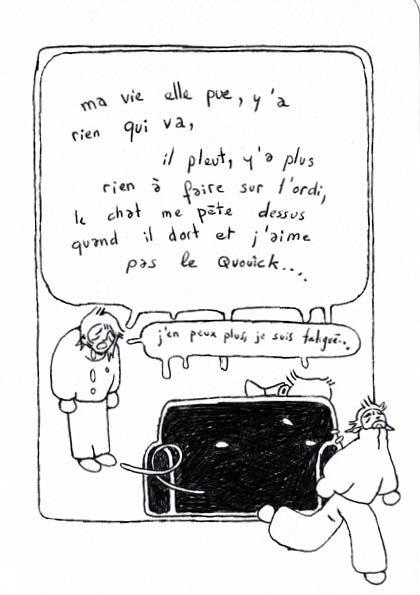 ma vie elle pue, y'a
rien qui va,
il pleut, y'a plus
rien à faire sur l'ordi,
le chat me pète dessus
quand il dort et j'aime
pas le Quouick....
j'en peux plus, je suis fatigué...